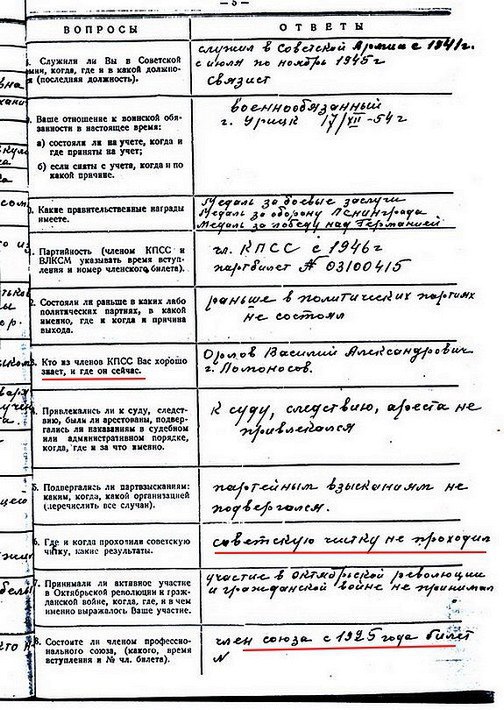 — 3 —
ВОПРОСЫ
ОТВЕТЫ
Служили ли Вы в Советской
Армии, когда, где и в какой должно-
(последняя должность).
служил в Советской Армии с 1941г.
с июля по ноябрь 1945г
связист
Ваше отношение к воинской обя-
занности в настоящее время:
а) состояли ли на учете, когда и
где приняты на учет;
б) если сняты с учета, когда и по
какой причине.
военнообязанный
г. Урицк 17/XII-54г
Какие правительственные награды
имеете.
Медаль за боевые заслуги
Медаль за оборону Ленинграда
Медаль за победу над Германией
Партийность (членом КПСС и
ВЛКСМ указывать время вступ-
ления и номер членского билета).
чл. КПСС с 1946г
партбилет № 03100415
Состояли ли раньше в каких либо
политических партиях, в какой
именно, где и когда и причина
выхода.
раньше в политических партиях
не состоял
Кто из членов КПСС Вас хорошо
знает, и где он сейчас.
Орлов Василий Александрович
г. Ломоносов.
Привлекались ли к суду, следст-
вию, были ли арестованы, подвер-
гались ли наказаниям в судебном
или административном порядке,
когда, где и за что именно.
к суду, следствию, ареста не
привлекался
5. Подвергались ли партвзысканиям:
каким, когда, какой организацией
(перечислить все случаи).
партейным взысканиям не
подвергался.
6. Где и когда проходили советскую
чистку, какие результаты.
советскую чистку не проходил
7. Принимали ли активное участие
в Октябрьской революции и граж-
данской войне, когда, где, и в чем
именно выражалось Ваше участие.
участие в Октябрьской революции
и гражданской войне не принимал
8. Состоите ли членом профессио-
нального союза, (какого, время
вступления и № чл. билета).
член союза с 1925 года билет
N